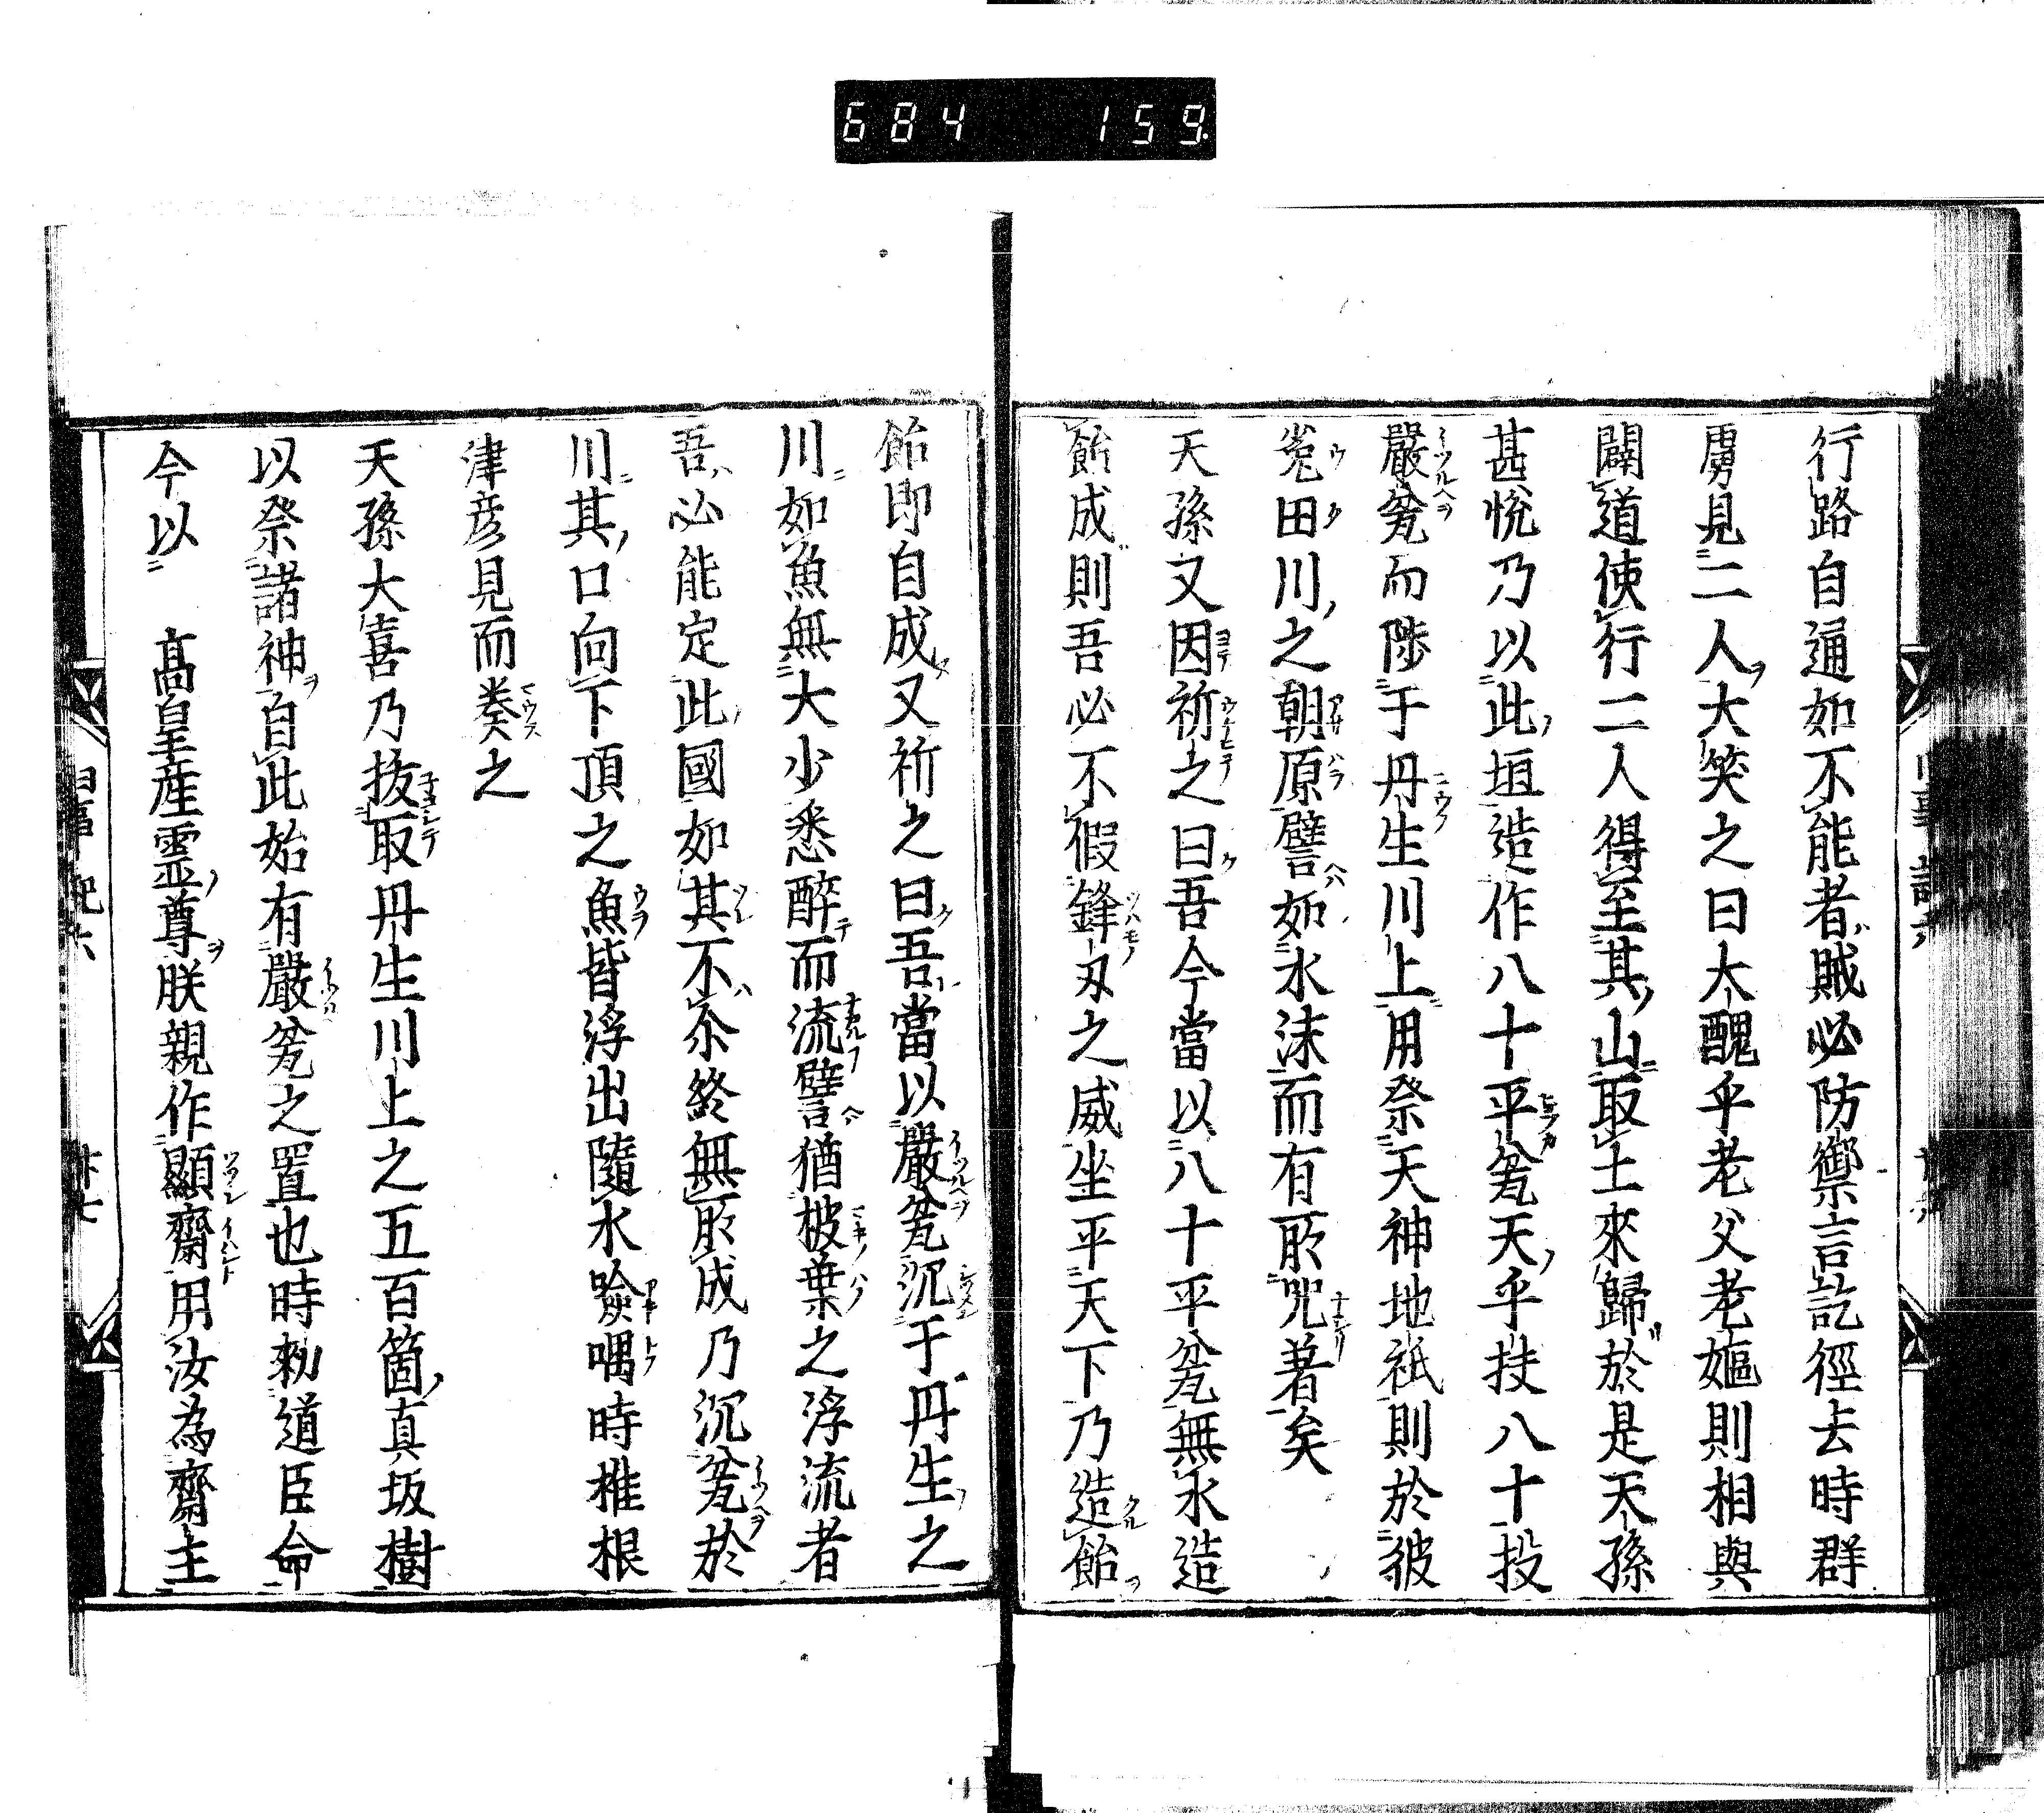 684 159
行路自通如不能者賊必防禦言訖徑去時群
虜見二人大笑之曰大醜乎老父老嫗則相與
闢道使行二人得至其山取土來歸於是天孫
甚悅乃以此埴造作八十平瓮天乎抉八十投
嚴瓮而陟于丹生川上用祭天神地祇則於彼
菟田川之朝原譬如水沫而有所咒著矣
天孫又因祈之曰吾今當以八十平瓮無水造
飴成則吾必不假鋒刃之威坐平天下乃造飴
飴即自成又祈之曰吾當以嚴瓮沉于丹生之
川如魚無大少悉醉而流譬猶柀葉之浮流者
吾必能定此國如其不尒終無所成乃沉瓮於
川其口向下頃之魚皆浮出隨水噞喁時椎根
津彦見而奏之
天孫大喜乃拔取丹生川上之五百箇真坂樹
以祭諸神自此始有嚴瓮之置也時勅道臣命
今以 高皇産霊尊朕親作顯齋用汝為齋主